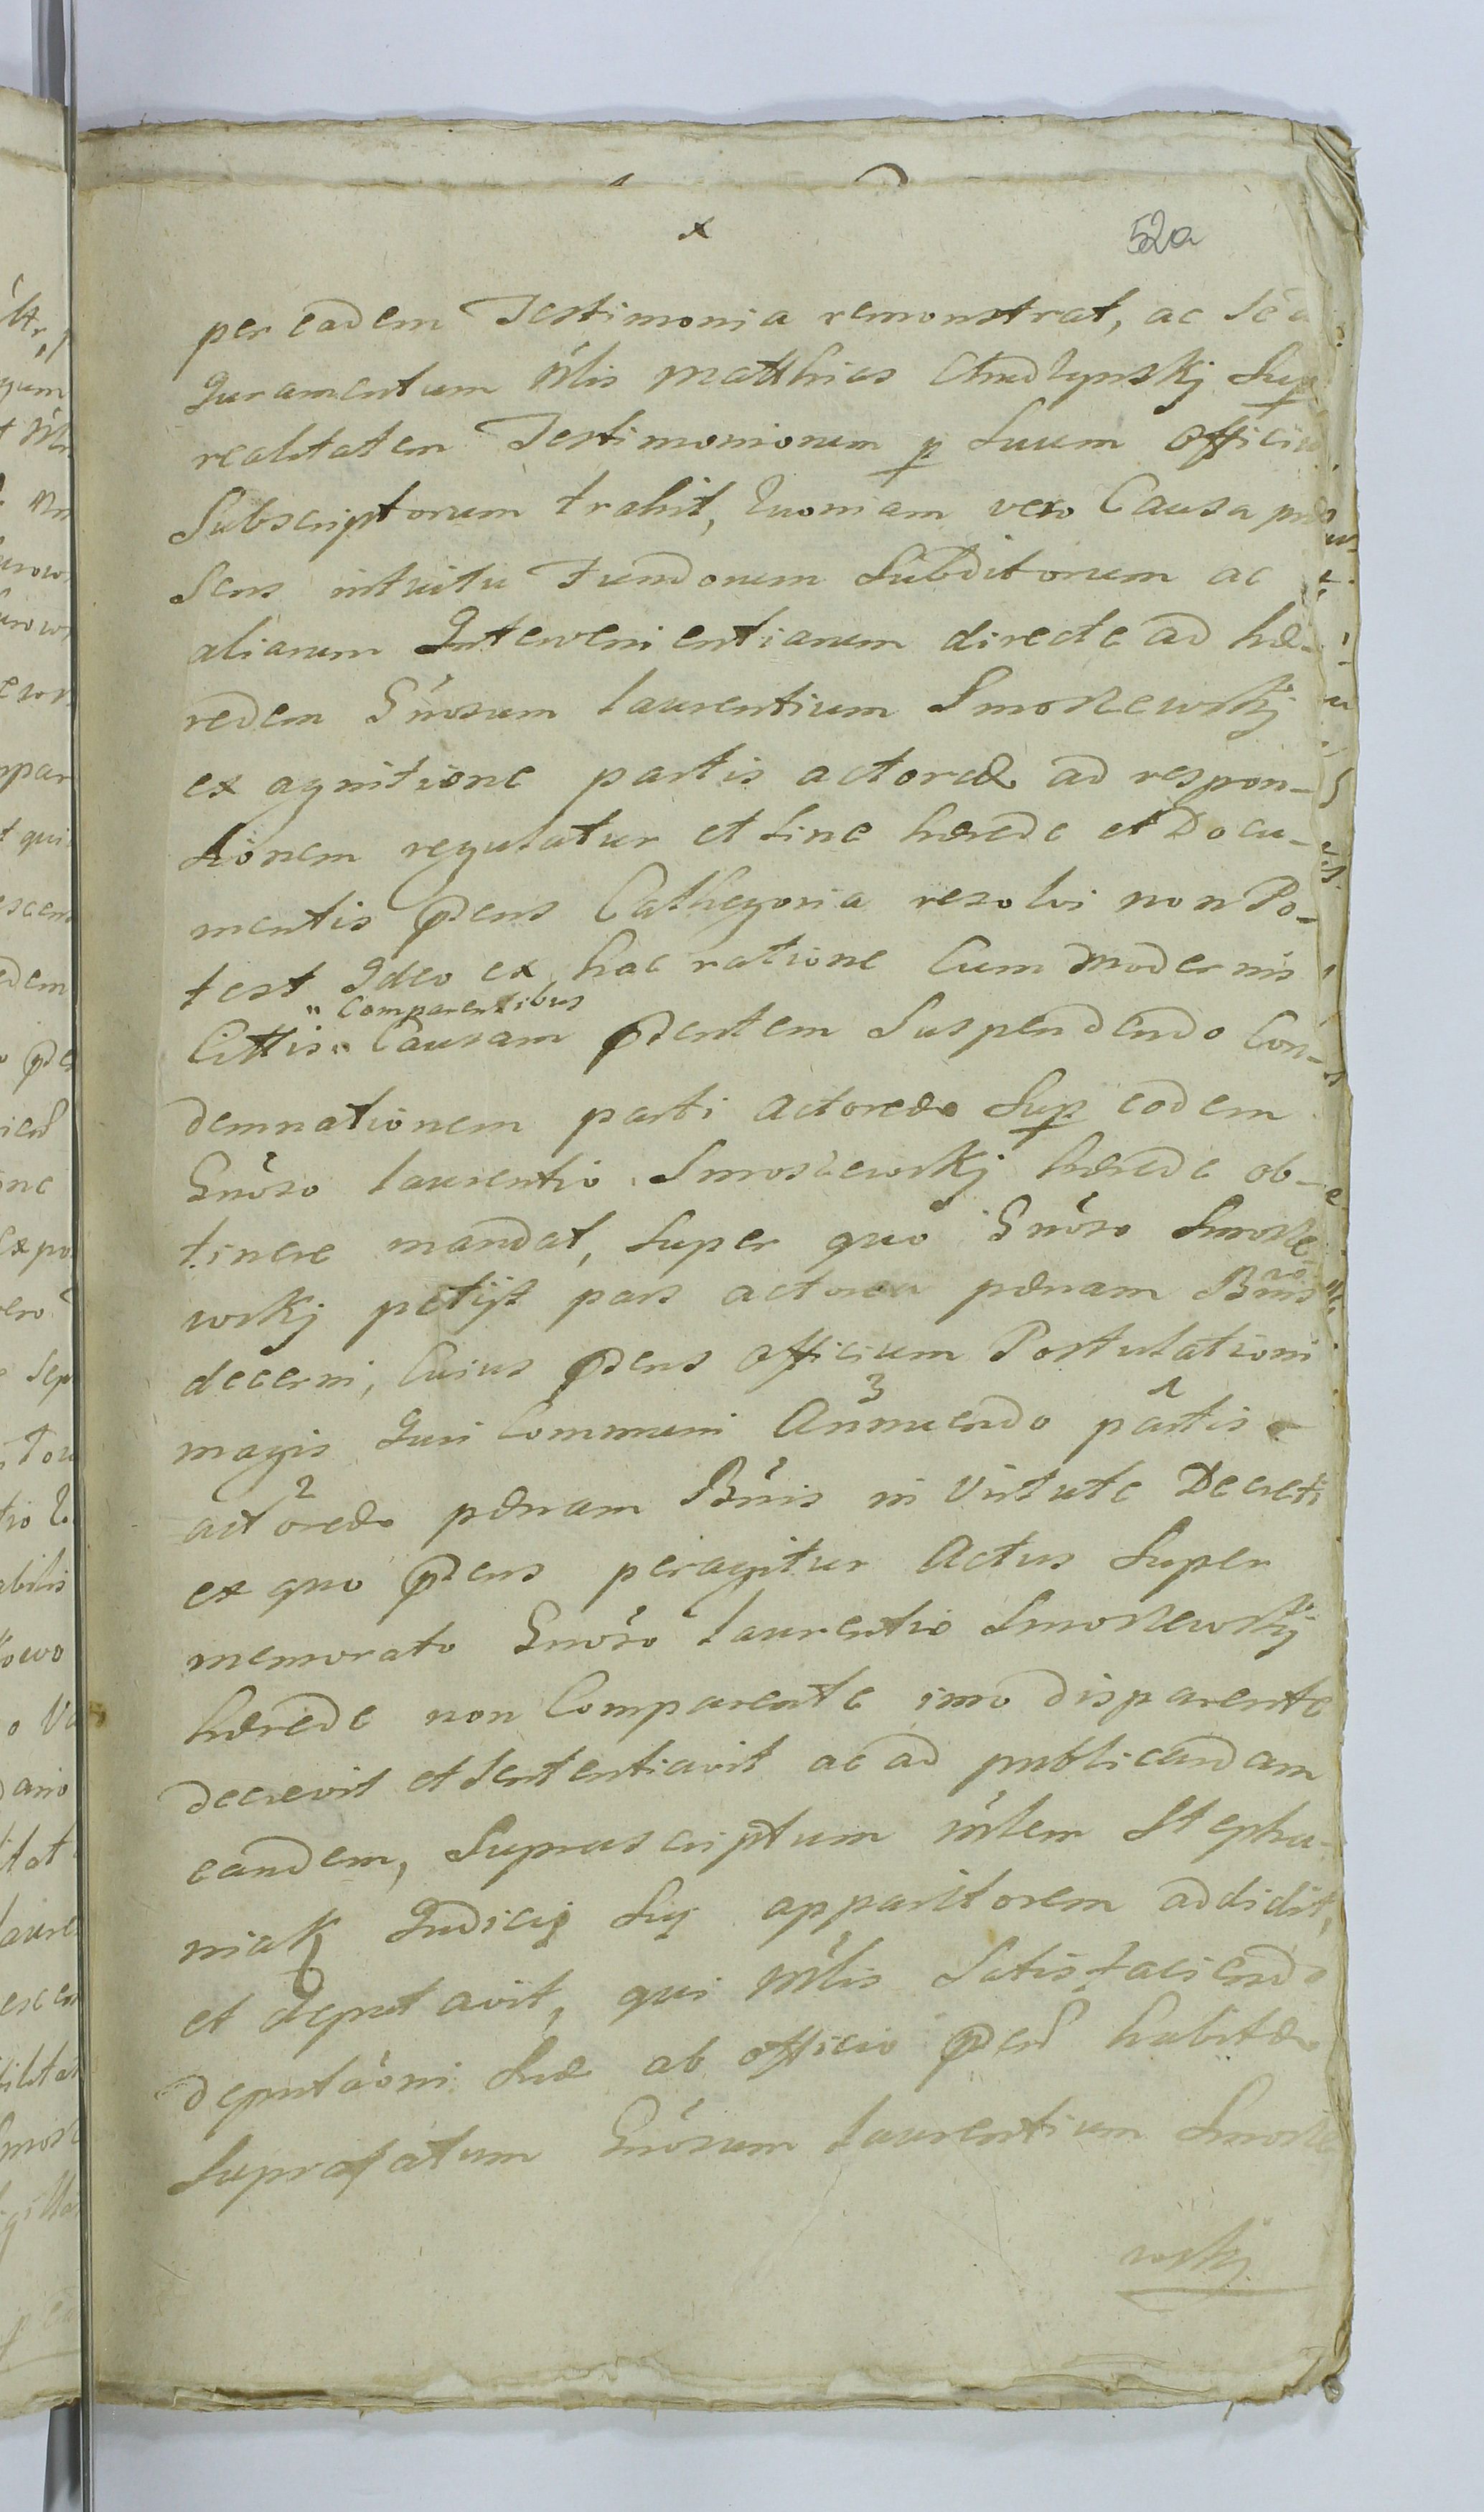 x
52a
per eadem Testimonia remonstrat, ac
Juramentum Nlis Matthias Chudzynskj Sup
realitatem Testimoniorum p Suum Officiu
Subscriptorum trahit, Quoniam vero Causa præ
sens intuitu Fundorum Subditorum ac
aliarum Intervenientiarum directe ad hæ-
redem Gnõsum Laurentium Smoszewskj
ex agnitione partis actoreæ ad respon-
sionem regulatur et sine hærede et Docu-
mentis pđens Cathegoria resolvi non Po-
test Ideo ex hac ratione Cum Modernis
" Comparentibus
Cittis " Causam pđentem Suspendendo Con-
demnationem parti actoreæ Sup eodem
Gnõso Laurentio Smoszewskj hærede ob-
tinere mandat, Super quo Gnõso Smosze-
wskj petijt pars actorea pænam Bnis
decerni, Cuius pđens Officium Postulationi
3 1
magis Juri Communi Annuendo partis
2
actoreæ pænam Bnis in Virtute Decreti
ex quo pđens peragitur Actus Super
memorato Gnõso Laurentio Smoszewskj
hærede non Comparente imo disparente
decrevit et Sententiavit ac ad publicandam
eandem, Suprascriptum Mlem Stepha-
niak Judicij Sui apparitorem addidit,
et deputavit, qui Mlis Satisfaciendo
deputaõni Suæ ab officio habitæ
Suprafatum Gnõsum Laurentium Smosze
wskj